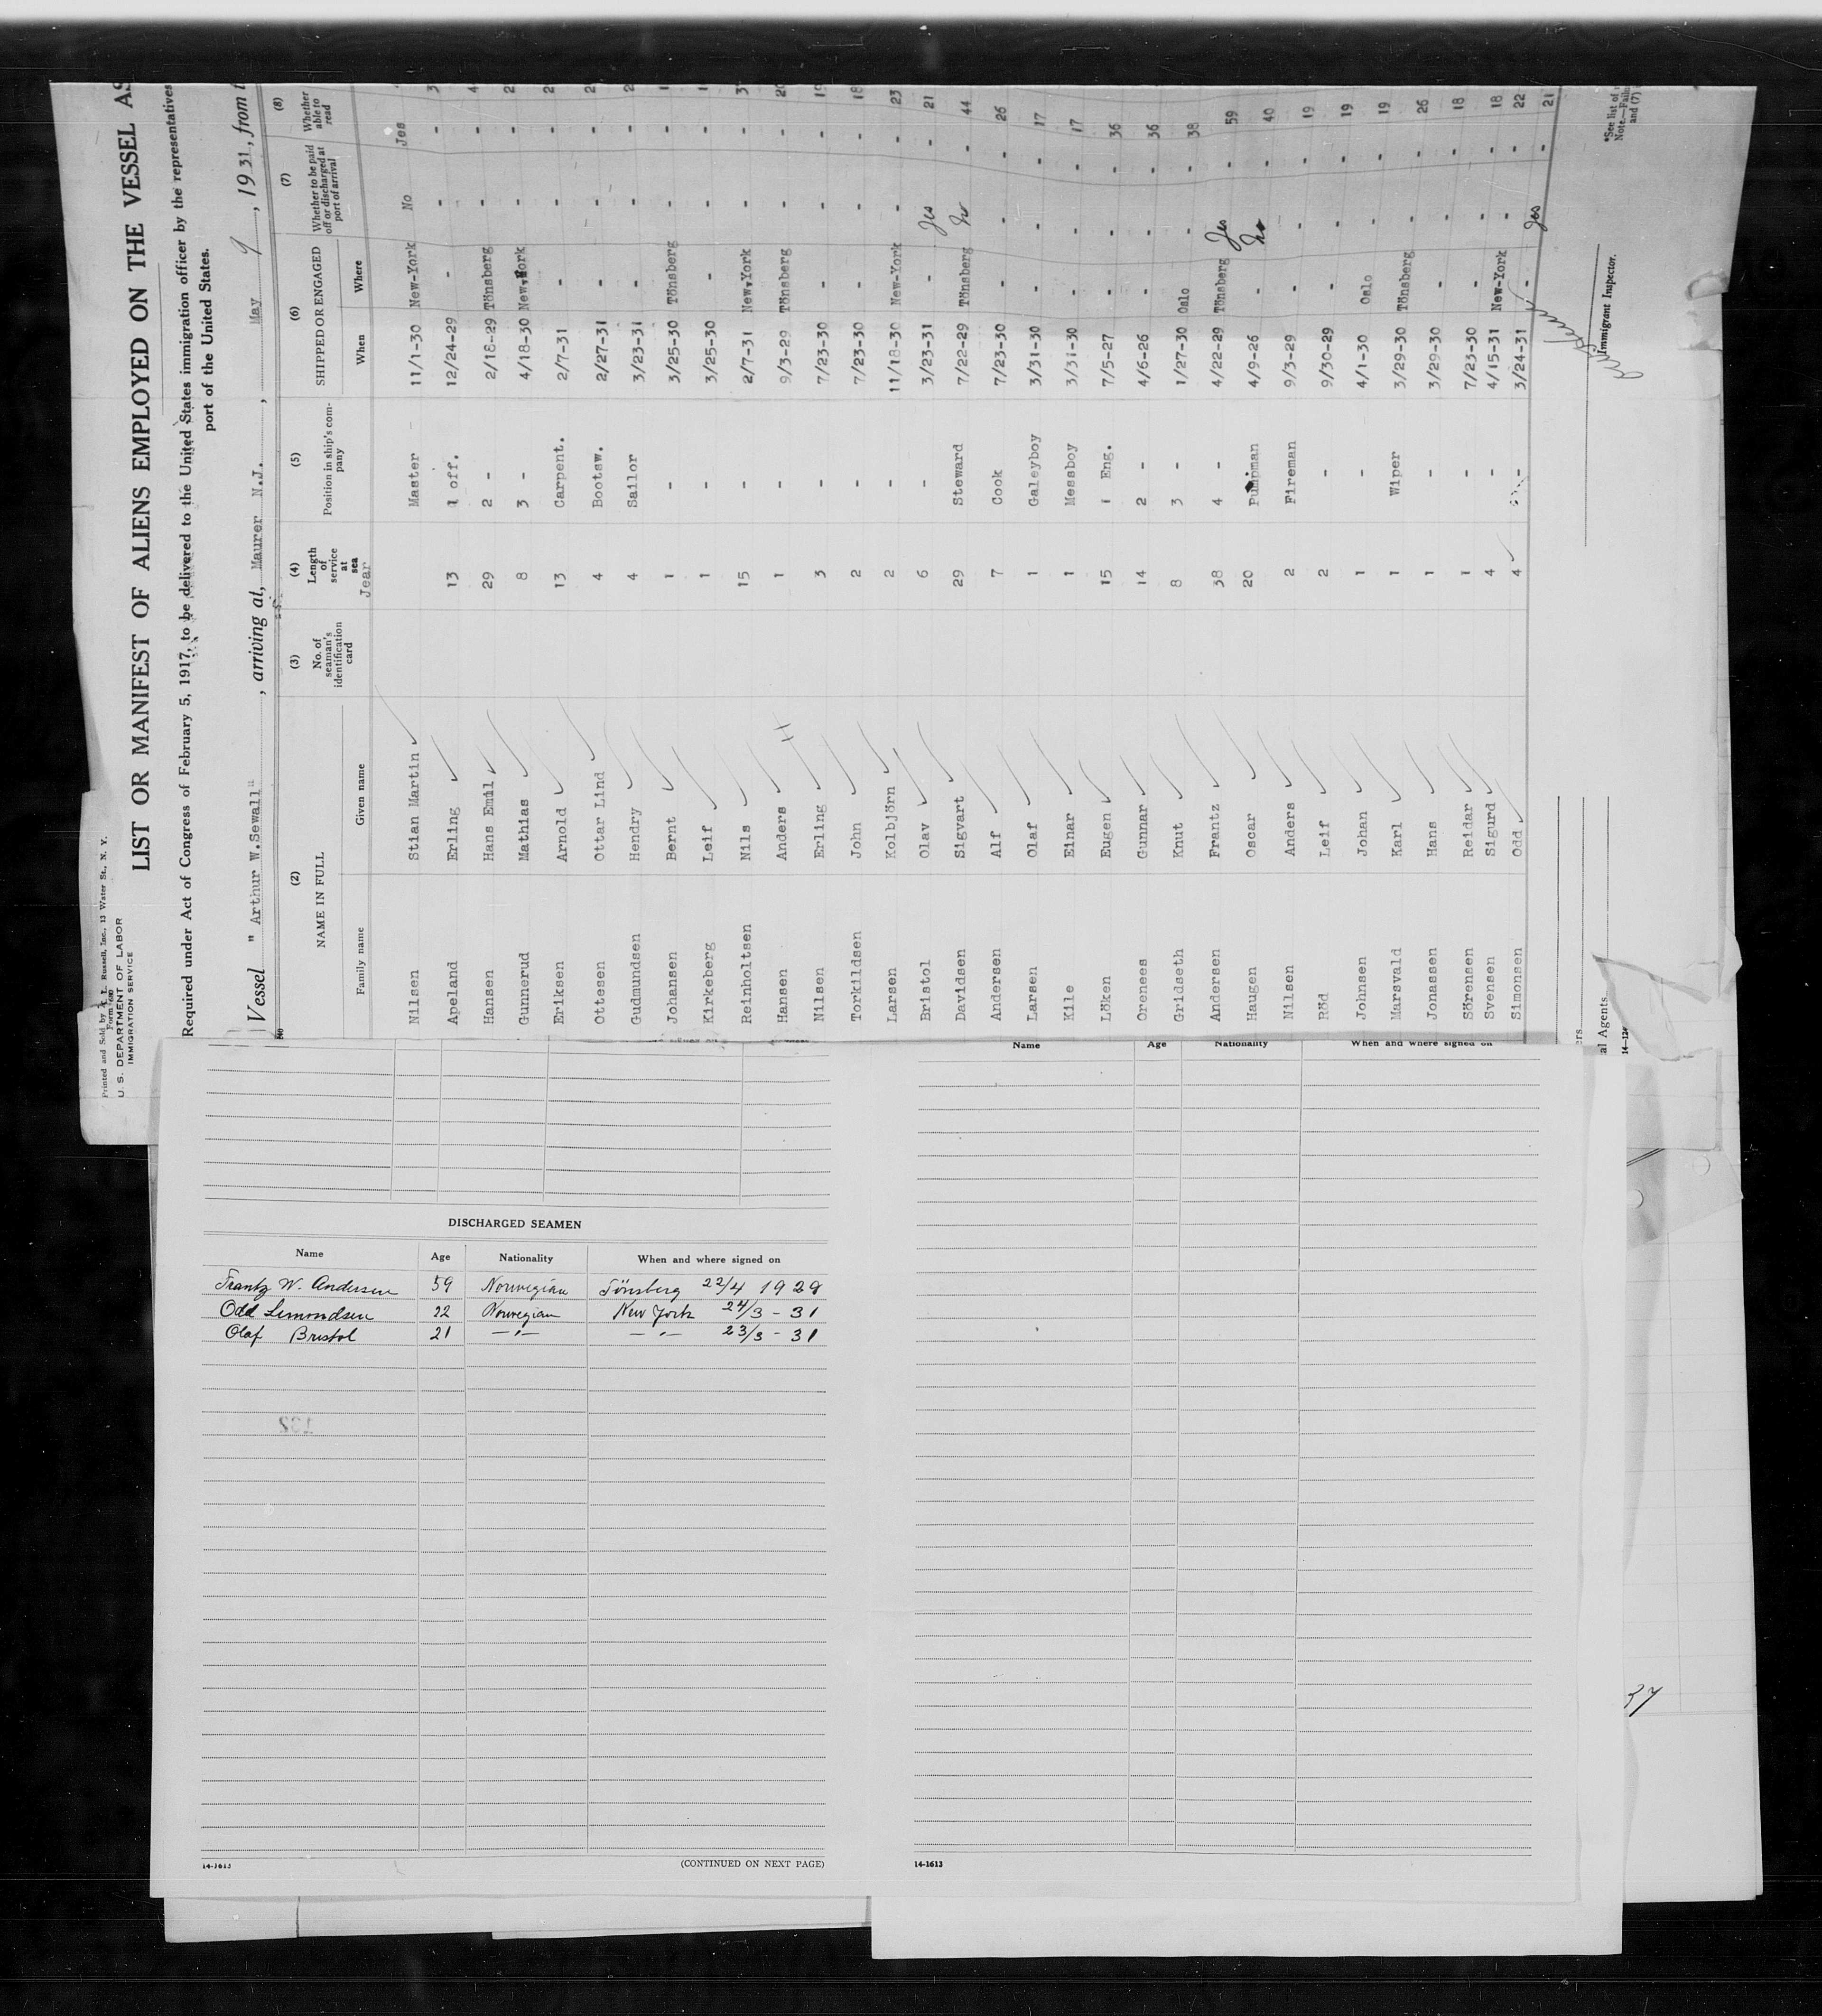 Printed and Sold by A. L. Russell, Inc., 13 Water St., N. Y.
Form 680
U. S. DEPARTMENT OF LABOR
IMMIGRATION SERVICE
LIST OR MANIFEST OF ALIENS EMPLOYED ON THE VESSEL AS
Required under Act of Congress of February 5, 1917, to be delivered to the United States immigration officer by the representatives
port of the United States.
Vessel " Arthur W.Sewall" , arriving at, Maurer N.J. , May 9 , 1931, from
(2) (3) (4) (5) (6) (7) (8)
NAME IN FULL No. of seaman's identification card Length of service at sea Position in ship's company SHIPPED OR ENGAGED Whether to be paid off or discharged at port of arrival Whether able to read
Family name Given name Jear When Where
Nilsen Stian Martin Master 11/1-30 New-York No Jes
Apeland Erling 13 1 off. 12/24-29 - - -
Hansen Hans Emil 29 2 - 2/18-29 Tönsberg - -
Gunnerud Mathias 8 3 - 4/18-30 New-York - -
Eriksen Arnold 13 Carpent. 2/7-31 - - -
Ottesen Ottar Lind 4 Bootsw. 2/27-31 - - -
Gudmundsen Hendry 4 Sailor 3/23-31 - - -
Johansen Bernt 1 - 3/25-30 Tönsberg - -
Kirkeberg Leif 1 - 3/25-30 - - -
Reinholtsen Nils 15 - 2/7-31 New-York - -
Hansen Anders 1 - 9/3-29 Tönsberg - - 20
Nilsen Erling 3 - 7/23-30 - - - 19
Torkildsen John 2 - 7/23-30 - - - 18
Larsen Kolbjörn 2 - 11/18-30 New-York - - 23
Bristol Olav 6 - 3/23-31 - Jes - 21
Davidsen Sigvart 29 Steward 7/22-29 Tönsberg No - 44
Andersen Alf 7 Cook 7/23-30 - - - 26
Larsen Olaf 1 Galeyboy 3/31-30 - - - 17
Kile Einar 1 Messboy 3/31-30 - - - 17
Löken Eugen 15 1 Eng. 7/5-27 - - - 36
Orenees Gunnar 14 2 - 4/6-26 - - - 36
Gridseth Knut 8 3 - 1/27-30 Oslo - - 38
Andersen Frantz 38 4 - 4/22-29 Tönsberg Jes - 59
Haugen Oscar 20 Pumpman 4/9-26 - No - 40
Nilsen Anders 2 Fireman 9/3-29 - - - 19
Röd Leif 2 - 9/30-29 - - - 19
Johnsen Johan 1 - 4/1-30 Oslo - - 19
Marsvald Karl 1 Wiper 3/29-30 Tönsberg - - 26
Jonassen Hans 1 - 3/29-30 - - - 18
Sörensen Reidar 1 - 7/23-30 - - - 18
Svensen Sigurd 4 - 4/15-31 New-York - - 22
Simonsen Odd 4 - 3/24-31 - Jes - 21
Immigrant Inspector.
*See list of
Note.—Failu
and (7)
al Agents.
DISCHARGED SEAMEN
Name Age Nationality When and where signed on
Frantz W. Andersen 59 Norwegian Tönsberg 22/4 1929
Odd Semondsen 22 Norwegian New York 24/3 - 31
Olaf Bristol 21 —"— —"— 23/3 - 31
132
14-1613 (CONTINUED ON NEXT PAGE)
Name Age Nationality When and where signed on
14-1613
37